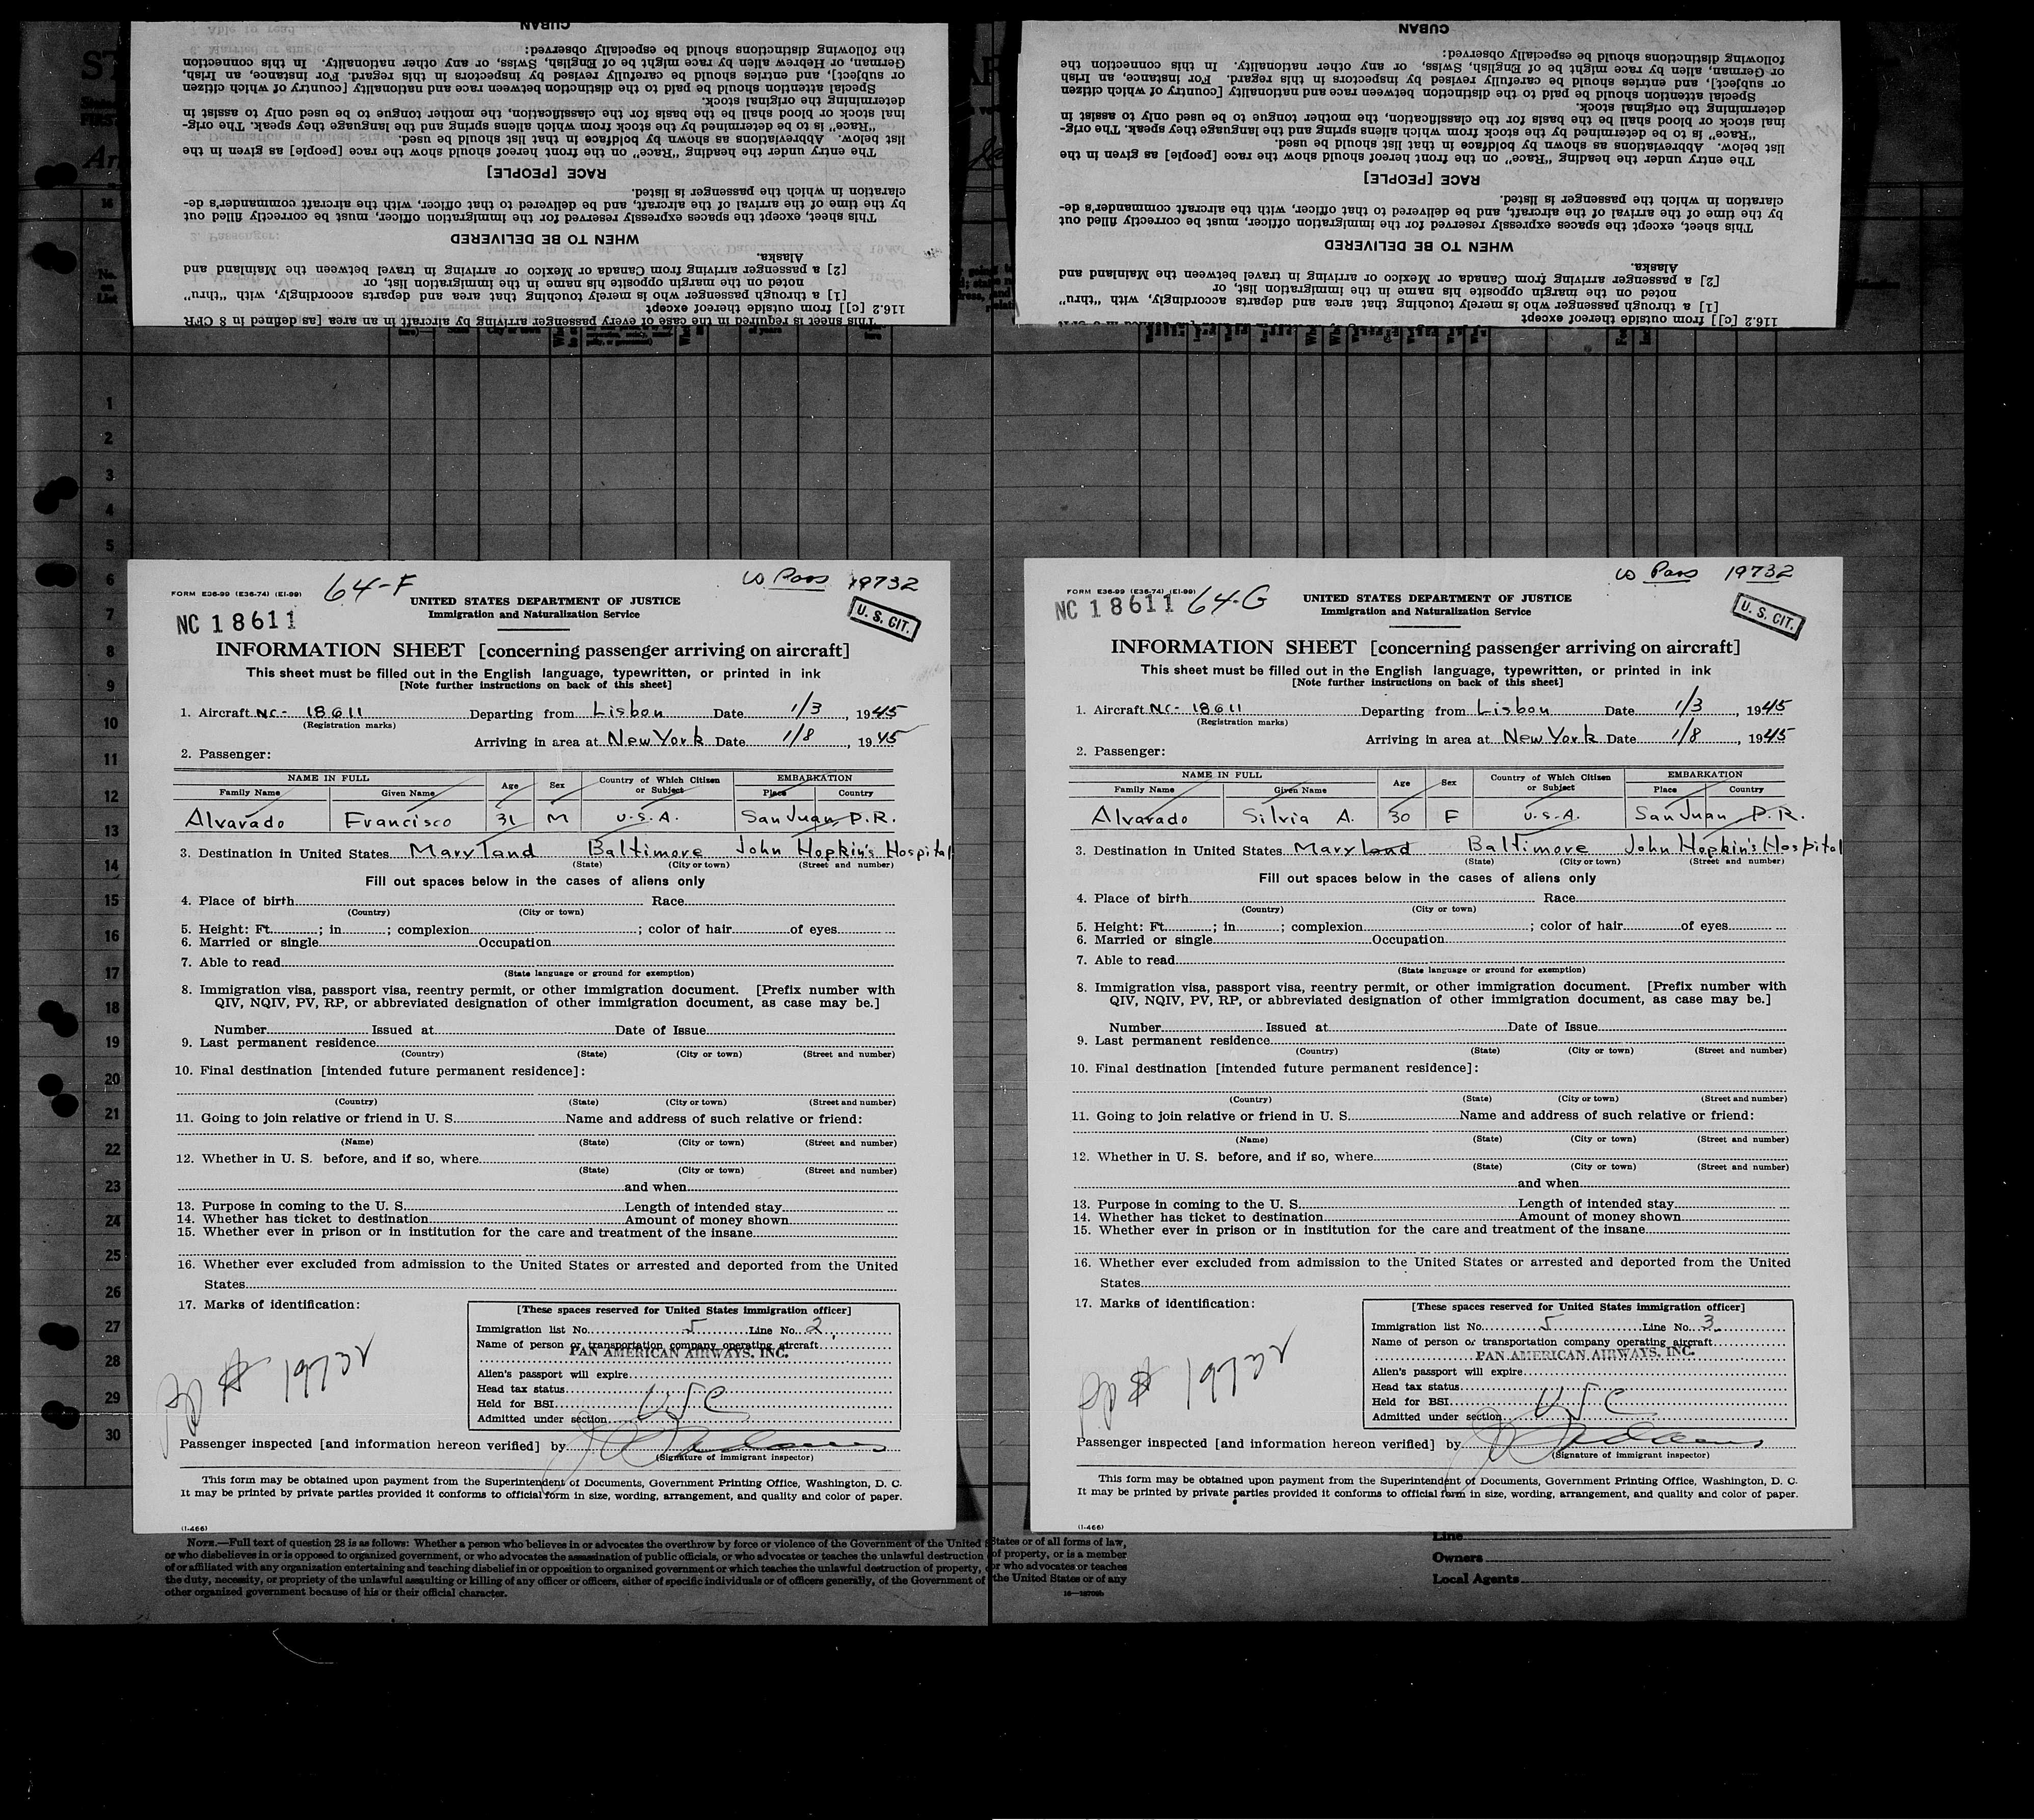 CUBAN
the following distinctions should be especially observed:
German, or Hebrew alien by race might be of English, Swiss, or any other nationality. In this connection
or subject], and entries should be carefully revised by inspectors in this regard. For instance, an Irish,
Special attention should be paid to the distinction between race and nationality [country of which citizen
determining the original stock.
inal stock or blood shall be the basis for the classification, the mother tongue to be used only to assist in
"Race" is to be determined by the stock from which aliens spring and the language they speak. The orig-
list below. Abbreviations as shown by boldface in that list should be used.
The entry under the heading "Race" on the front hereof should show the race [people] as given in the
RACE [PEOPLE]
claration in which the passenger is listed.
by the time of the arrival of the aircraft, and be delivered to that officer, with the aircraft commander's de-
This sheet, except the spaces expressly reserved for the immigration officer, must be correctly filled out
WHEN TO BE DELIVERED
Alaska.
[2] a passenger arriving from Canada or Mexico or arriving in travel between the Mainland and
noted on the margin opposite his name in the immigration list, or
[1] a through passenger who is merely touching that area and departs accordingly, with "thru"
116.2 [c]] from outside thereof except
This sheet is required in the case of every passenger arriving by aircraft in an area [as defined in 8 CFR
CUBAN
following distinctions should be especially observed:
or German, alien by race might be of English, Swiss, or any other nationality. In this connection the
or subject], and entries should be carefully revised by inspectors in this regard. For instance, an Irish
Special attention should be paid to the distinction between race and nationality [country of which citizen
determining the original stock.
inal stock or blood shall be the basis for the classification, the mother tongue to be used only to assist in
"Race" is to be determined by the stock from which aliens spring and the language they speak. The orig-
list below. Abbreviations as shown by boldface in that list should be used.
The entry under the heading "Race" on the front hereof should show the race [people] as given in the
RACE [PEOPLE]
claration in which the passenger is listed.
by the time of the arrival of the aircraft, and be delivered to that officer, with the aircraft commander's de-
This sheet, except the spaces expressly reserved for the immigration officer, must be correctly filled out
WHEN TO BE DELIVERED
Alaska.
[2] a passenger arriving from Canada or Mexico or arriving in travel between the Mainland and
noted on the margin opposite his name in the immigration list, or
[1] a through passenger who is merely touching that area and departs accordingly, with "thru"
116.2 [c]] from outside thereof except
1
2
3
4
5
6
7
8
9
10
11
12
13
14
15
16
17
18
19
20
21
22
23
24
25
26
27
28
29
30
FORM E36-99 (E36-74) (EI-99) 64-F Pass 19732
UNITED STATES DEPARTMENT OF JUSTICE
Immigration and Naturalization Service
NC 18611 U.S. CIT.
INFORMATION SHEET [concerning passenger arriving on aircraft]
This sheet must be filled out in the English language, typewritten, or printed in ink
[Note further instructions on back of this sheet]
1. Aircraft NC- 18611 Departing from Lisbon Date 1/3, 1945
(Registration marks)
Arriving in area at New York Date 1/8, 1945
2. Passenger:
NAME IN FULL Age Sex Country of Which Citizen or Subject EMBARKATION
Family Name Given Name Place Country
Alvarado Francisco 31 M U.S.A. San Juan P.R.
3. Destination in United States Maryland Baltimore John Hopkin's Hospital
(State) (City or town) (Street and number)
Fill out spaces below in the cases of aliens only
4. Place of birth Race
(Country) (City or town)
5. Height: Ft. ; in ; complexion ; color of hair of eyes
6. Married or single Occupation
7. Able to read
(State language or ground for exemption)
8. Immigration visa, passport visa, reentry permit, or other immigration document. [Prefix number with
QIV, NQIV, PV, RP, or abbreviated designation of other immigration document, as case may be.]
Number Issued at Date of Issue
9. Last permanent residence
(Country) (State) (City or town) (Street and number)
10. Final destination [intended future permanent residence]:
(Country) (State) (City or town) (Street and number)
11. Going to join relative or friend in U. S. Name and address of such relative or friend:
(Name) (State) (City or town) (Street and number)
12. Whether in U. S. before, and if so, where
(State) (City or town) (Street and number)
and when
13. Purpose in coming to the U. S. Length of intended stay
14. Whether has ticket to destination Amount of money shown
15. Whether ever in prison or in institution for the care and treatment of the insane
16. Whether ever excluded from admission to the United States or arrested and deported from the United
States
17. Marks of identification:
[These spaces reserved for United States immigration officer]
Immigration list No. 5 Line No. 2
Name of person or transportation company operating aircraft
PAN AMERICAN AIRWAYS, INC.
Alien's passport will expire
Head tax status
Held for BSI
Admitted under section
USC
pp # 19732
Passenger inspected [and information hereon verified] by
(Signature of immigrant inspector)
This form may be obtained upon payment from the Superintendent of Documents, Government Printing Office, Washington, D. C.
It may be printed by private parties provided it conforms to official form in size, wording, arrangement, and quality and color of paper.
(I-466)
FORM E36-99 (E36-74) (EI-99) Pass 19732
NC 18611 64-G
UNITED STATES DEPARTMENT OF JUSTICE
Immigration and Naturalization Service
U.S. CIT.
INFORMATION SHEET [concerning passenger arriving on aircraft]
This sheet must be filled out in the English language, typewritten, or printed in ink
[Note further instructions on back of this sheet]
1. Aircraft NC- 18611 Departing from Lisbon Date 1/3, 1945
(Registration marks)
Arriving in area at New York Date 1/8, 1945
2. Passenger:
NAME IN FULL Age Sex Country of Which Citizen or Subject EMBARKATION
Family Name Given Name Place Country
Alvarado Silvia A. 30 F U.S.A. San Juan P.R.
3. Destination in United States Maryland Baltimore John Hopkin's Hospital
(State) (City or town) (Street and number)
Fill out spaces below in the cases of aliens only
4. Place of birth Race
(Country) (City or town)
5. Height: Ft. ; in ; complexion ; color of hair of eyes
6. Married or single Occupation
7. Able to read
(State language or ground for exemption)
8. Immigration visa, passport visa, reentry permit, or other immigration document. [Prefix number with
QIV, NQIV, PV, RP, or abbreviated designation of other immigration document, as case may be.]
Number Issued at Date of Issue
9. Last permanent residence
(Country) (State) (City or town) (Street and number)
10. Final destination [intended future permanent residence]:
(Country) (State) (City or town) (Street and number)
11. Going to join relative or friend in U. S. Name and address of such relative or friend:
(Name) (State) (City or town) (Street and number)
12. Whether in U. S. before, and if so, where
(State) (City or town) (Street and number)
and when
13. Purpose in coming to the U. S. Length of intended stay
14. Whether has ticket to destination Amount of money shown
15. Whether ever in prison or in institution for the care and treatment of the insane
16. Whether ever excluded from admission to the United States or arrested and deported from the United
States
17. Marks of identification:
[These spaces reserved for United States immigration officer]
Immigration list No. 5 Line No. 3
Name of person or transportation company operating aircraft
PAN AMERICAN AIRWAYS, INC.
Alien's passport will expire
Head tax status
Held for BSI
Admitted under section
USC
pp # 19732
Passenger inspected [and information hereon verified] by
(Signature of immigrant inspector)
This form may be obtained upon payment from the Superintendent of Documents, Government Printing Office, Washington, D. C.
It may be printed by private parties provided it conforms to official form in size, wording, arrangement, and quality and color of paper.
(I-466)
NOTE.—Full text of question 28 is as follows: Whether a person who believes in or advocates the overthrow by force or violence of the Government of the United States or of all forms of law,
or who disbelieves in or is opposed to organized government, or who advocates the assassination of public officials, or who advocates or teaches the unlawful destruction of property, or is a member
of or affiliated with any organization entertaining and teaching disbelief in or opposition to organized government or which teaches the unlawful destruction of property, or who advocates or teaches
the duty, necessity, or propriety of the unlawful assaulting or killing of any officer or officers, either of specific individuals or of officers generally, of the Government of the United States or of any
other organized government because of his or their official character.
Line
Owners
Local Agents